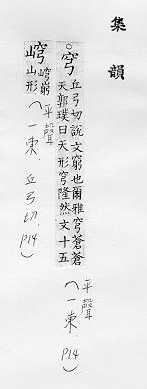 集韻
○穹 丘弓切說文窮也爾雅穹蒼蒼
天郭璞曰天形穹隆然文十五
平聲
(一東 P14)
山形
平聲
(一東. 丘弓切. P14)